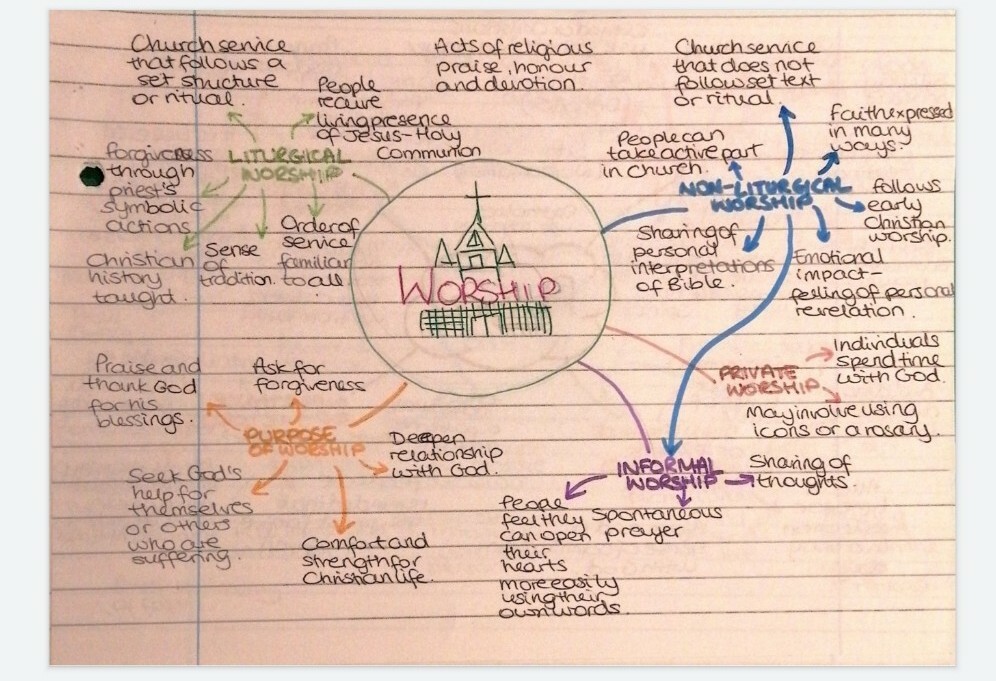 Church service
that follows a
set structure
or ritual.
People
receive
living presence
of Jesus-Holy
Communion
Acts of religious
praise, honour
and devotion.
Church service
that does not
follow set text
or ritual.
LITURGICAL
WORSHIP
forgiveness
through
priest's
symbolic
actions
Christian
history
taught.
Sense
of
tradition.
Order of
service
familiar
to all
WORSHIP
NON-LITURGICAL
WORSHIP
People can
take active part
in church.
Faith expressed
in many
ways.
follows
early
Christian
worship.
Sharing of
personal
interpretations
of Bible.
Emotional
impact-
feeling of personal
revelation.
PRIVATE
WORSHIP
Individuals
spend time
with God.
May involve using
icons or a rosary.
INFORMAL
WORSHIP
Sharing of
thoughts.
Spontaneous
prayer
People
feel they
can open
their
hearts
more easily
using their
own words.
PURPOSE
OF WORSHIP
Praise and
thank God
for his
blessings.
Ask for
forgiveness
Deepen
relationship
with God.
Seek God's
help for
themselves
or others
who are
suffering.
Comfort and
strength for
Christian life.